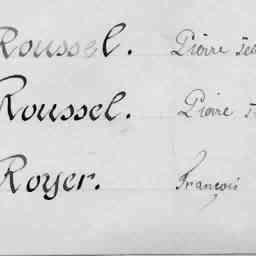 Roussel. Pierre
Roussel. Pierre
Royer. François